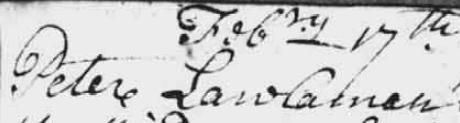 Feb.ry 17th
Peter Lawlaman